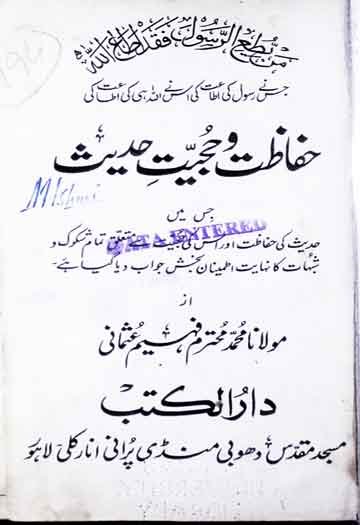 من يطع الرسول فقد اطاع الله
جس نے رسول کی اطاعت کی اس نے اللہ ہی کی اطاعت کی
حفاظت و حجیّتِ حدیث
جس میں
حدیث کی حفاظت اور اس کی حجیت سے متعلق تمام شکوک و
شبہات کا نہایت اطمینان بخش جواب دیا گیا ہے۔
DATA ENTERED
از
مولانا محمد محترم فہیم عثمانی
دارالکتب
مسجد مقدس دھوبی منڈی پرانی انارکلی لاہور